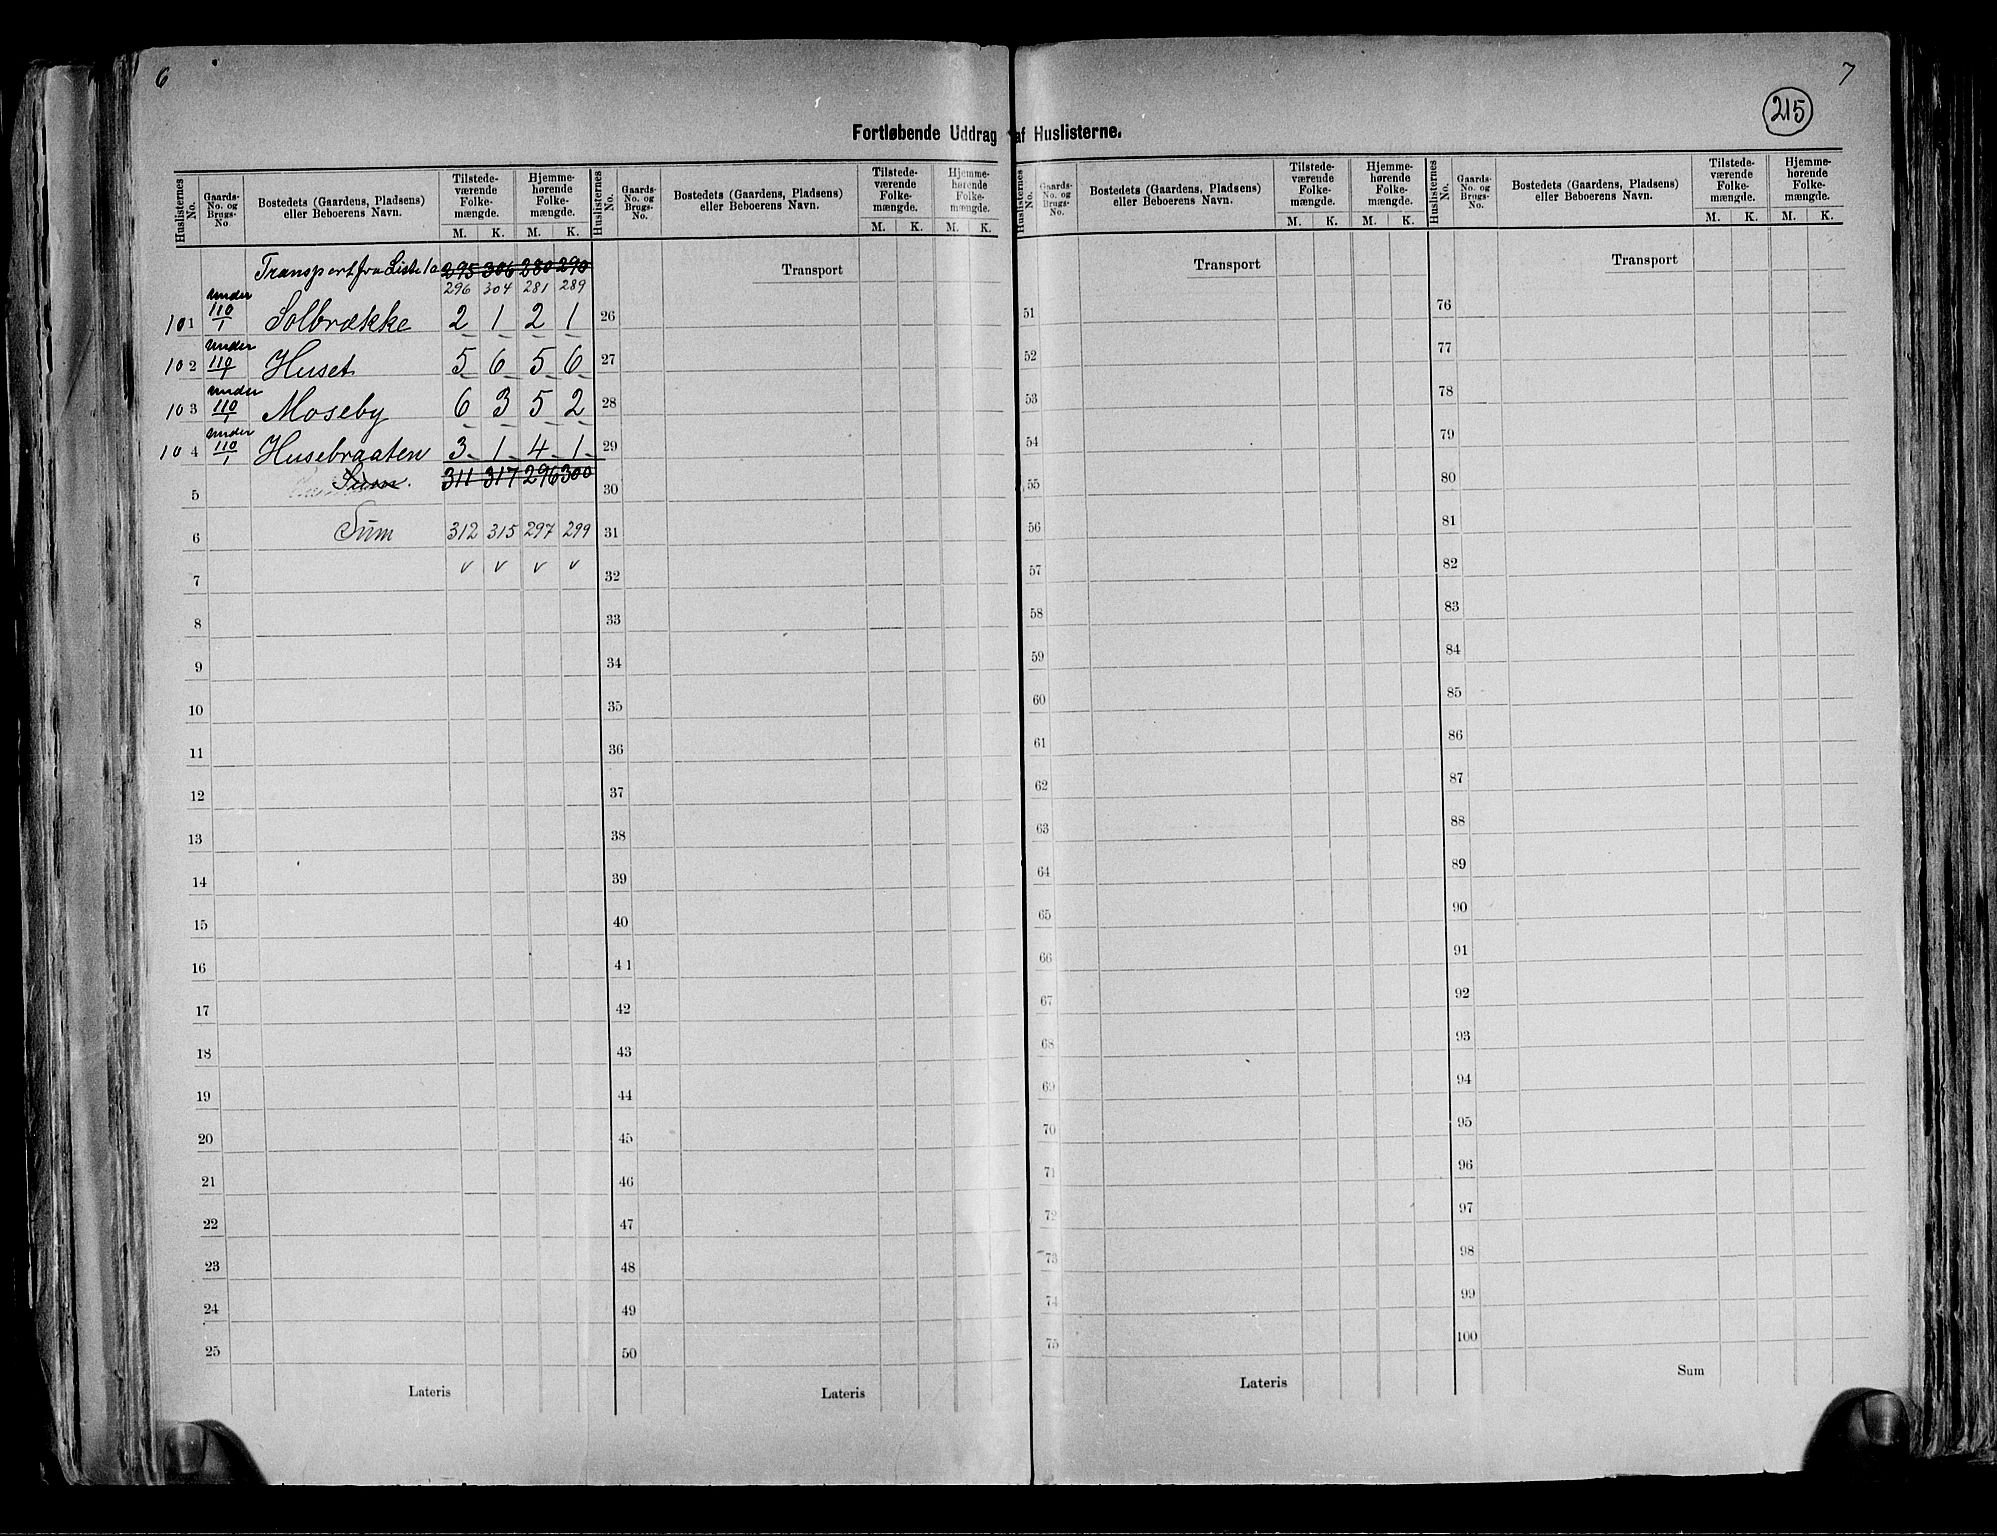 6
7
215
Fortløbende Uddrag af Huslisterne.
Huslisternes No. | Gaards-No. og Brugs-No. | Bostedets (Gaardens, Pladsens) eller Beboerens Navn. | Tilstede-værende Folke-mængde. M. K. | Hjemme-hørende Folke-mængde. M. K.
Transport fra Liste 1a 295 306 280 290
296 304 281 289
101 under 110/1 Solbrække 2 1 2 1
102 under 110/1 Huset 5 6 5 6
103 under 110/1 Moseby 6 3 5 2
104 under 110/1 Husebraaten 3 1 4 1
5 Sum. 311 317 296 300
6 Sum 312 315 297 299
7 v v v v
8
9
10
11
12
13
14
15
16
17
18
19
20
21
22
23
24
25
Lateris
Huslisternes No. | Gaards-No. og Brugs-No. | Bostedets (Gaardens, Pladsens) eller Beboerens Navn. | Tilstede-værende Folke-mængde. M. K. | Hjemme-hørende Folke-mængde. M. K.
Transport
26
27
28
29
30
31
32
33
34
35
36
37
38
39
40
41
42
43
44
45
46
47
48
49
50
Lateris
Huslisternes No. | Gaards-No. og Brugs-No. | Bostedets (Gaardens, Pladsens) eller Beboerens Navn. | Tilstede-værende Folke-mængde. M. K. | Hjemme-hørende Folke-mængde. M. K.
Transport
51
52
53
54
55
56
57
58
59
60
61
62
63
64
65
66
67
68
69
70
71
72
73
74
75
Lateris
Huslisternes No. | Gaards-No. og Brugs-No. | Bostedets (Gaardens, Pladsens) eller Beboerens Navn. | Tilstede-værende Folke-mængde. M. K. | Hjemme-hørende Folke-mængde. M. K.
Transport
76
77
78
79
80
81
82
83
84
85
86
87
88
89
90
91
92
93
94
95
96
97
98
99
100
Sum